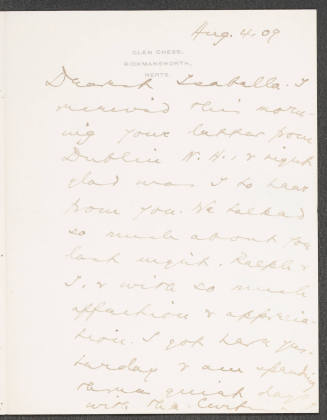 Aug. 4. 09
GLEN CHESS,
RICKMANSWORTH,
HERTS.
Dearest Isabella. I
received this morn-
ing your letter from
Dublin N. H., & right
glad was I to hear
from you. We talked
so much about you
last night. Ralph &
I, & with so much
affection & apprecia-
tion. I got here yes-
terday & am spending
three quiet days
with the Curtises